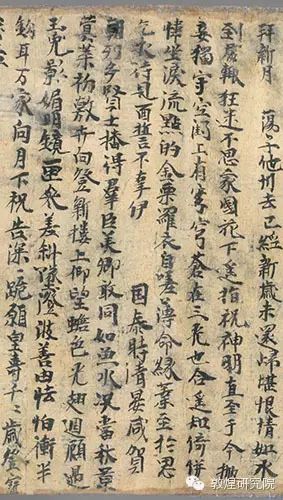 拜新月 蕩子他州去已經新歲未還歸堪恨情如水
到處輒狂迷不思家國花下遥指祝神明直至于今抛
妾獨守空閨上有穹蒼在三光也合遥知倚併
幃坐淚流點的金粟羅衣自嗟薄命緣業至於思
乞求待見面誓不辜伊 國泰時清晏咸賀
朝列多賢士播得羣臣美卿敢同如魚水況當秋景
蓂葉初敷卉向登新樓上仰望蟾色光翅迴顧遇
玉兔影媚明鏡匣參差斜墜澄波美由怯怕衘半
鈎耳万家向月下祝告深〻跪願皇壽千〻歲登寶
敦煌研究院